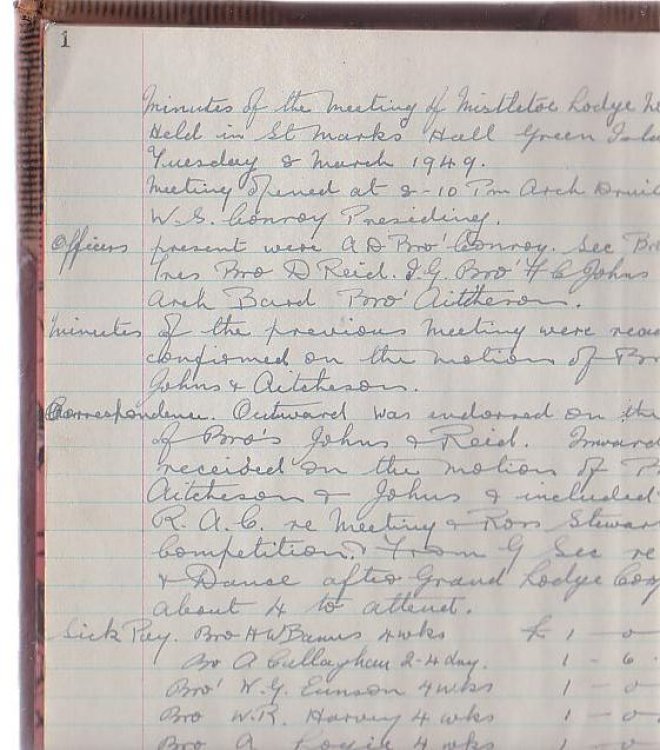 1
Minutes of the Meeting of Mistletoe Lodge
Held in St Marks Hall Green
Tuesday 8 March 1949.
Meeting opened at 8-10 Pm Arch
W.S. Conroy Presiding.
Officers present were A D Bro' Conroy. Sec
Tres Bro D Reid. I.G. Bro' H C Johns
Arch Bard Bro' Aitcheson.
Minutes of the previous Meeting were
confirmed on the motion of
Johns & Aitcheson.
Correspondence. Outward was endorsed on the
of Bro's Johns & Reid.
received on the motion of
Aitcheson & Johns & included
R. A. C. re Meeting & Ross
Competition. & From G Sec re
& Dance after Grand Lodge
about 4 to attend.
Sick Pay. Bro H W 4 wks £ 1 - 0
Bro A Callaghan 2-4 day. 1 - 6
Bro' W. G. Eunson 4 wks 1 - 0
Bro W. R. Harvey 4 wks 1 - 0
Bro A 4 wks 1 - 0